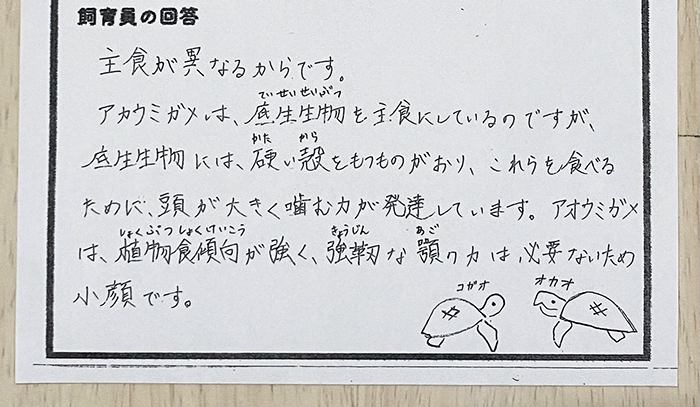 飼育員の回答
主食が異なるからです。
ていせいせいぶつ
アカウミガメは、底生生物を主食にしているのですが、
かた から
底生生物には、硬い殻をもつものがおり、これらを食べる
ために、頭が大きく噛む力が発達しています。アオウミガメ
しょくぶつしょくけいこう きょうじん あご
は、植物食傾向が強く、強靭な顎の力は必要ないため
小顔です。
コガオ オカオ